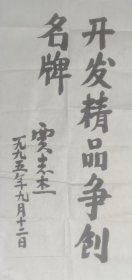 开发精品争创
名牌
贾志杰
一九九五年九月十二日